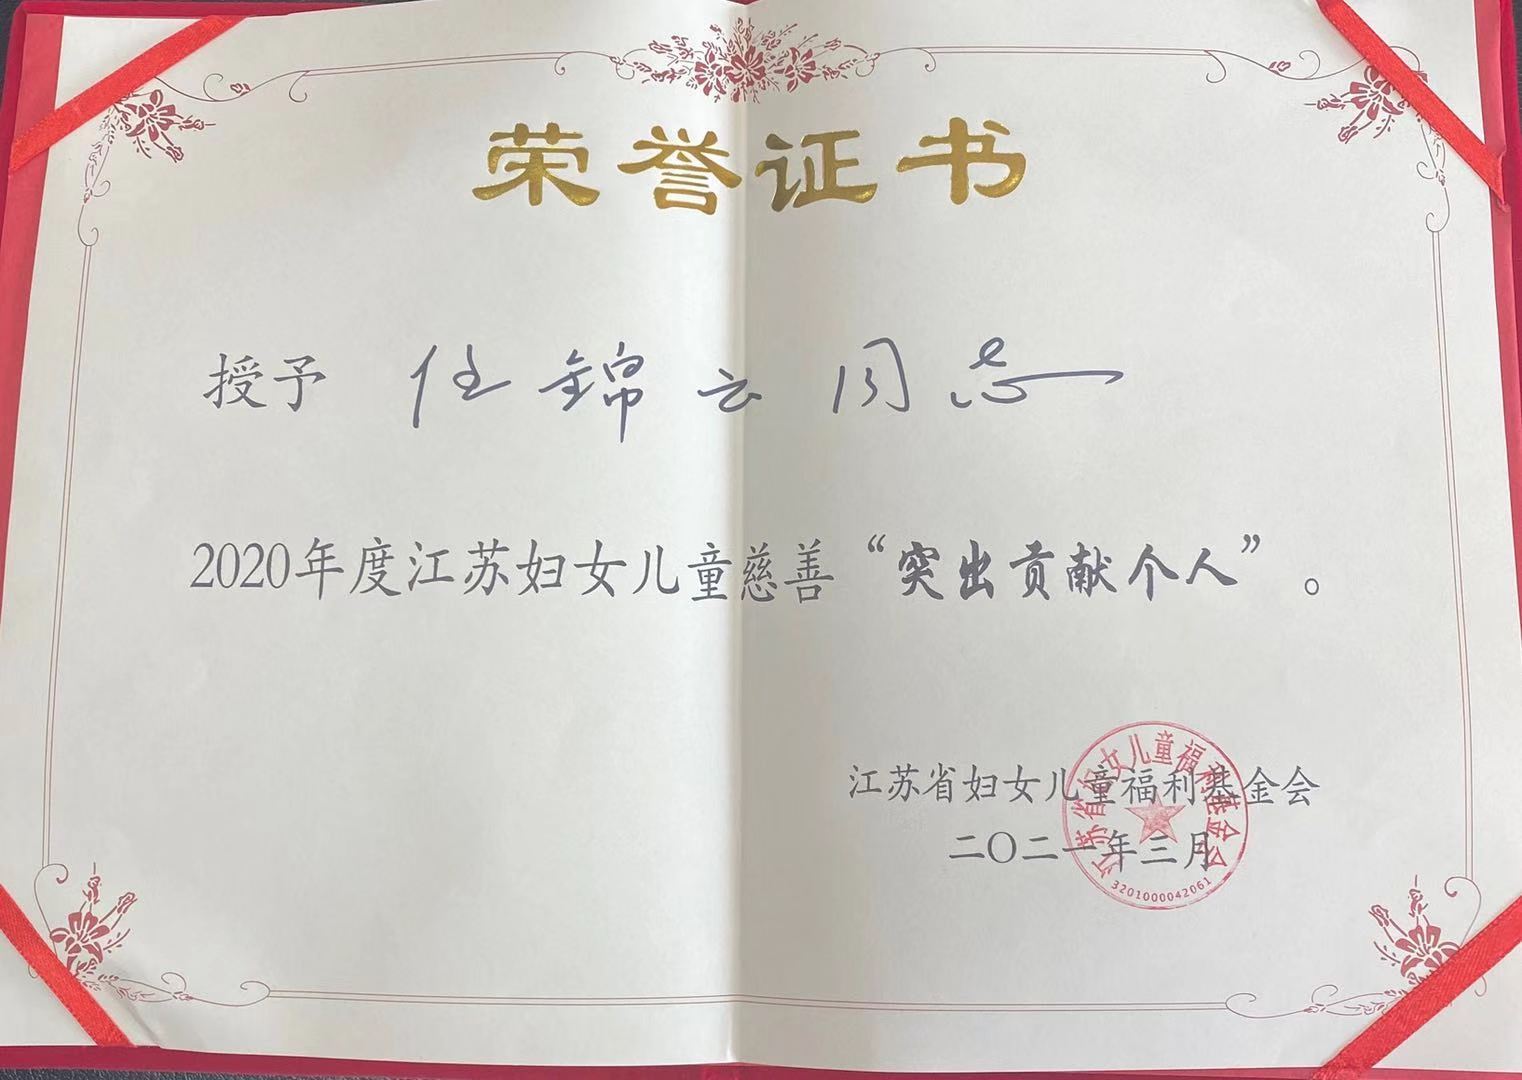 荣誉证书
授予 任锦云同志
2020年度江苏妇女儿童慈善“突出贡献个人”。
江苏省妇女儿童福利基金会
二〇二一年三月
江苏省妇女儿童福利基金会
3201000042061